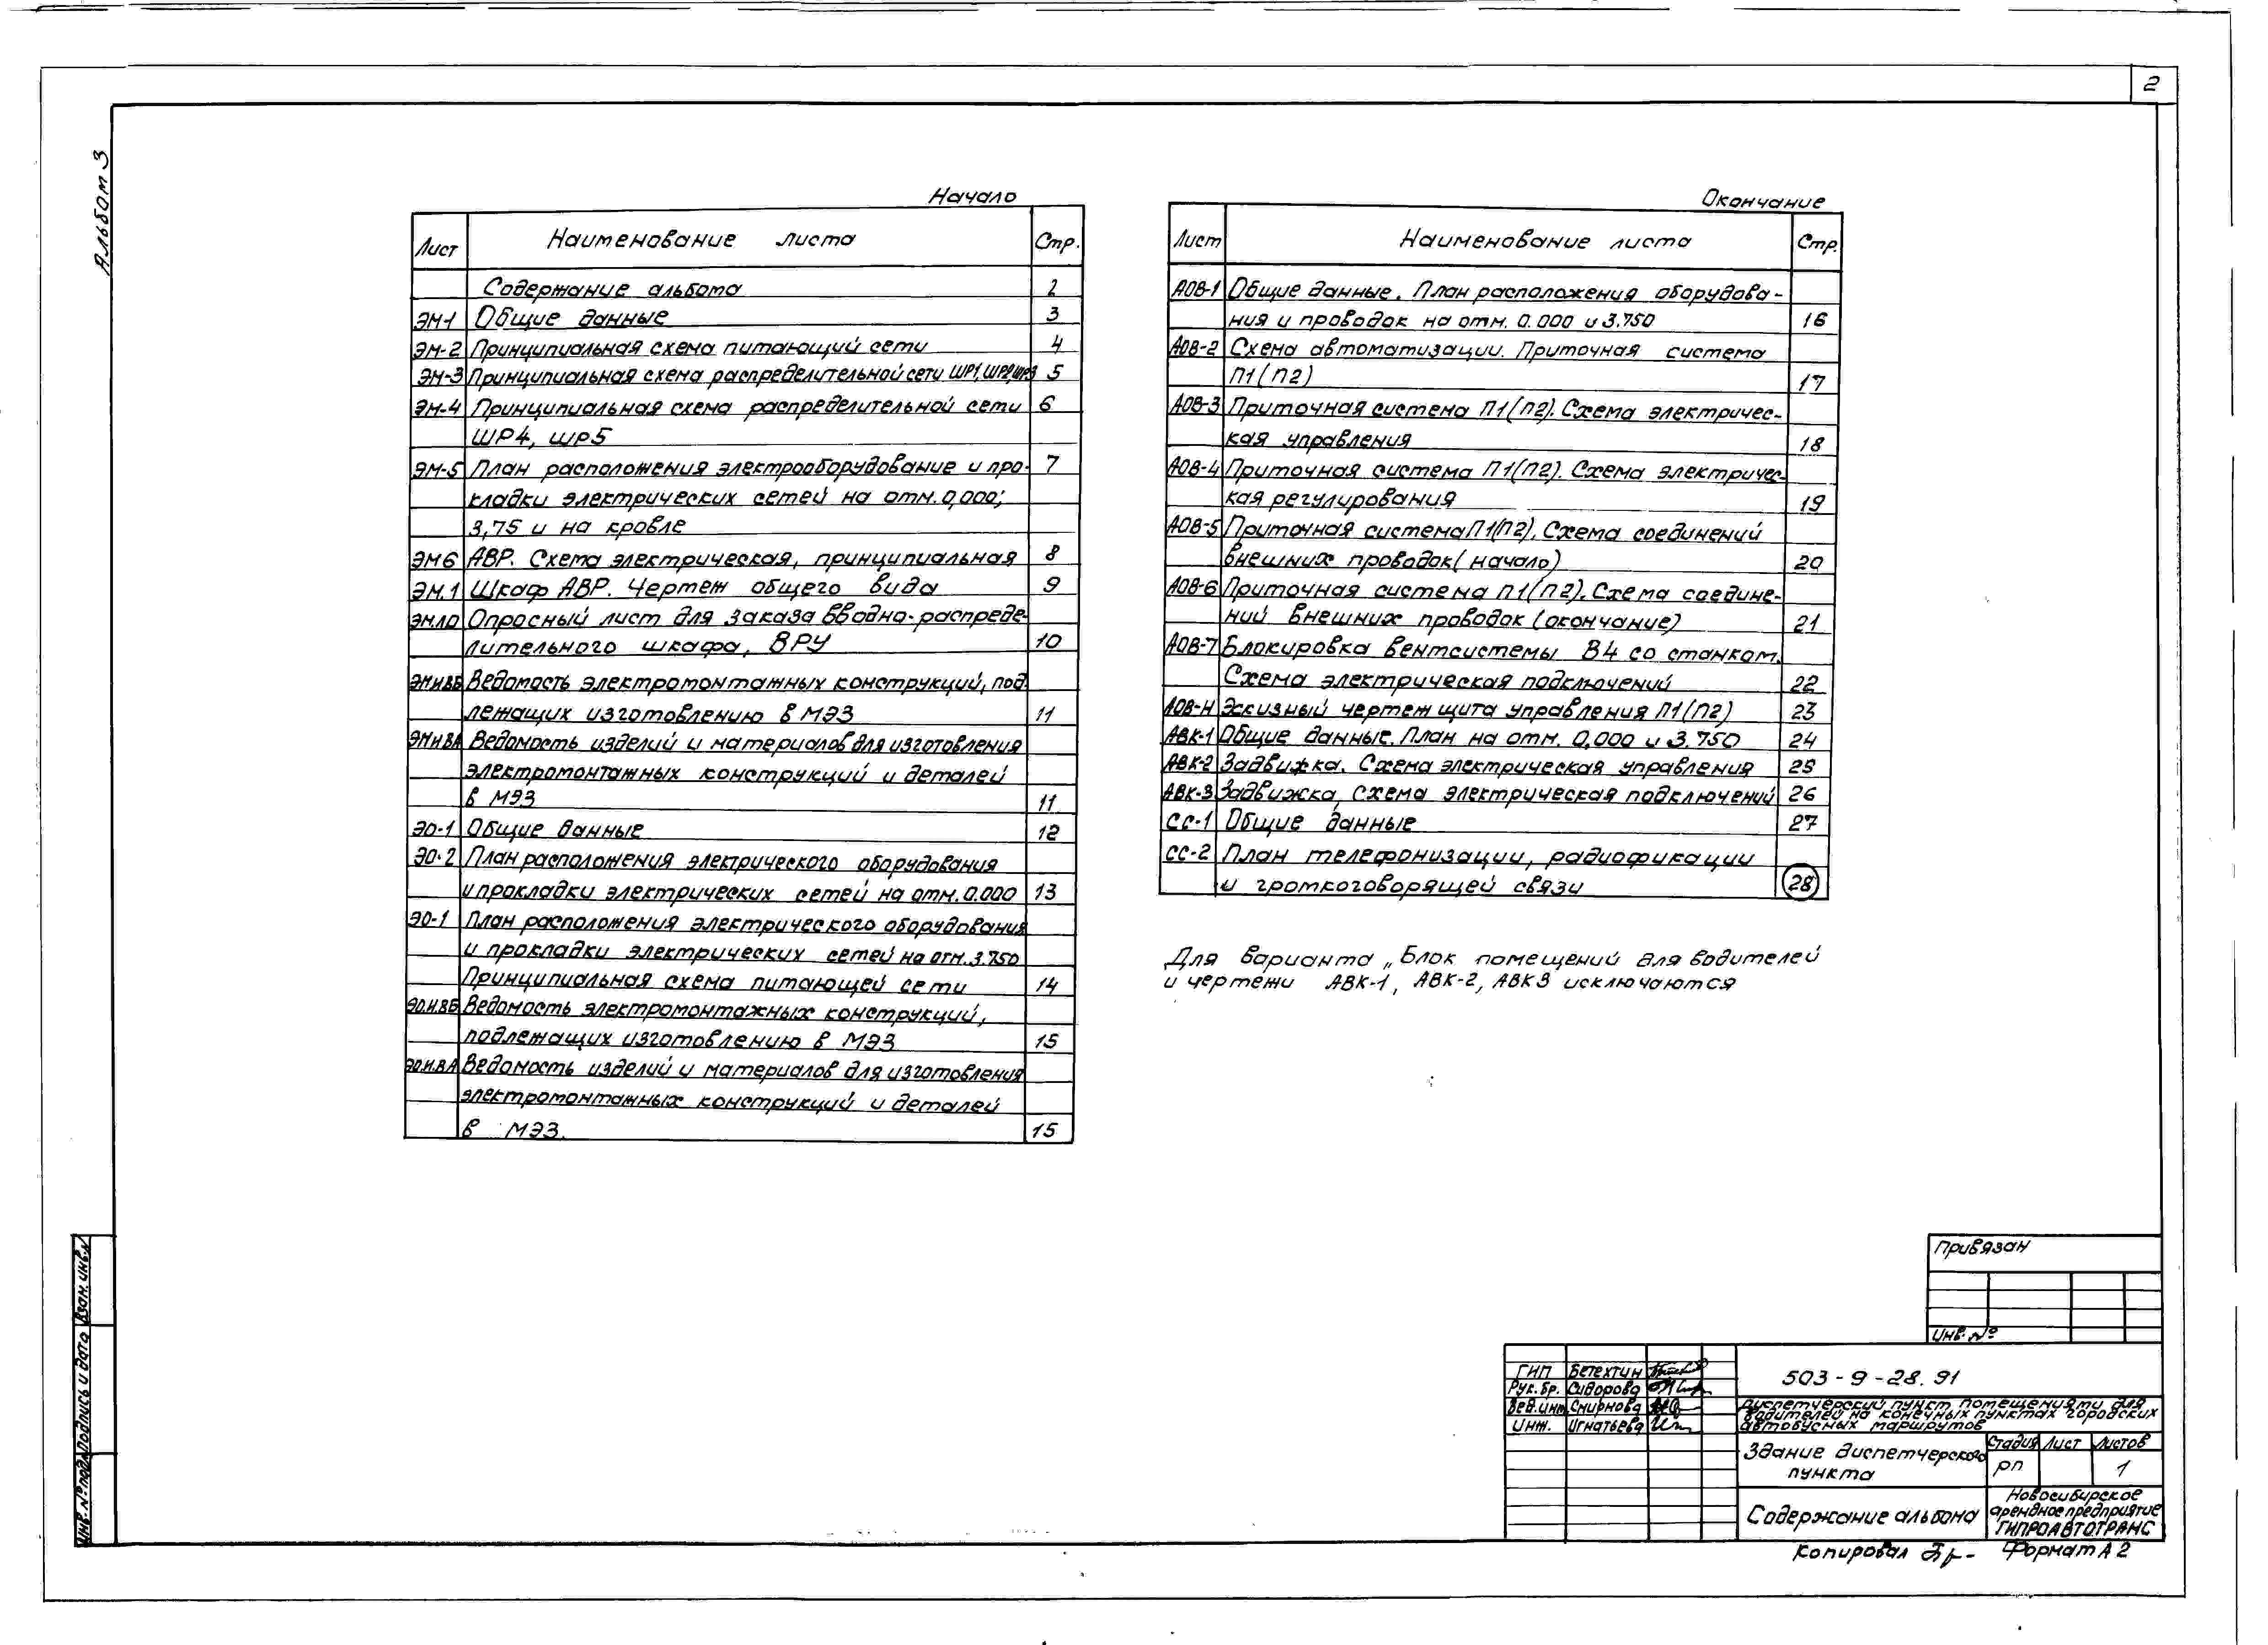 2
Альбом 3
Начало
Лист Наименование листа Стр.
Содержание альбома 2
ЭМ-1 Общие данные 3
ЭМ-2 Принципиальная схема питающий сети 4
ЭМ-3 Принципиальная схема распределительной сети ШР1, ШР2, ШР3 5
ЭМ-4 Принципиальная схема распределительной сети 6
ШР4, ШР5
ЭМ-5 План расположения электрооборудование и про- 7
кладки электрических сетей на отм. 0,000;
3,75 и на кровле
ЭМ6 АВР. Схема электрическая, принципиальная 8
ЭМ.1 Шкаф АВР. Чертеж общего вида 9
Опросный лист для заказа вводно-распреде-
лительного шкафа, ВРУ 10
ЭМ.И.ВБ Ведомость электромонтажных конструкций, под
лежащих изготовлению в МЭЗ 11
ЭМ.И.ВА Ведомость изделий и материалов для изготовления
электромонтажных конструкций и деталей
в МЭЗ 11
ЭО-1 Общие данные 12
ЭО-2 План расположения электрического оборудования
и прокладки электрических сетей на отм. 0.000 13
ЭО-1 План расположения электрического оборудования
и прокладки электрических сетей на отм. 3.750
Принципиальная схема питающей сети 14
ЭО.И.ВБ Ведомость электромонтажных конструкций,
подлежащих изготовлению в МЭЗ 15
ЭО.И.ВА Ведомость изделий и материалов для изготовления
электромонтажных конструкций и деталей
в МЭЗ. 15
Окончание
Лист Наименование листа Стр.
АОВ-1 Общие данные. План расположения оборудова-
ния и проводок на отм. 0.000 и 3.750 16
АОВ-2 Схема автоматизации. Приточная система
П1(П2) 17
АОВ-3 Приточная система П1(П2). Схема электричес-
кая управления 18
АОВ-4 Приточная система П1(П2). Схема электричес-
кая регулирования 19
АОВ-5 Приточная система П1(П2). Схема соединений
внешних проводок (начало) 20
АОВ-6 Приточная система П1(П2). Схема соедине-
ний внешних проводок (окончание) 21
АОВ-7 Блокировка вентсистемы В4 со станком.
Схема электрическая подключений 22
АОВ-Н Эскизный чертеж щита управления П1(П2) 23
АВК-1 Общие данные. План на отм. 0,000 и 3.750 24
АВК-2 Задвижка. Схема электрическая управления 25
АВК-3 Задвижка, Схема электрическая подключений 26
СС-1 Общие данные 27
СС-2 План телефонизации, радиофикации
и громкоговорящей связи 28
Для варианта „Блок помещений для водителей
и чертежи АВК-1, АВК-2, АВК3 исключаются
Привязан
Инв. №
ГИП Бетехтин
Рук. бр. Сидорова
Вед. инж. Смирнова
Инж. Игнатьева
503-9-28.91
Диспетчерский пункт помещениями для
водителей на конечных пунктах городских
автобусных маршрутов
Здание диспетчерского
пункта
Стадия Лист Листов
РП 1
Содержание альбома
Новосибирское
арендное предприятие
ГИПРОАВТОТРАНС
Копировал
Формат А2
Инв. № подл. Подпись и дата Взам. инв. №